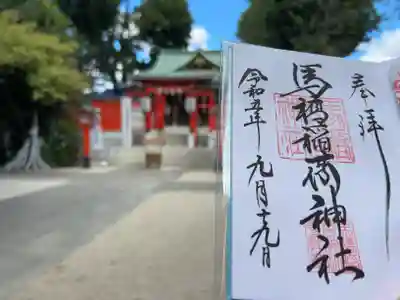 奉拝
馬橋稲荷神社
令和五年 九月十九日